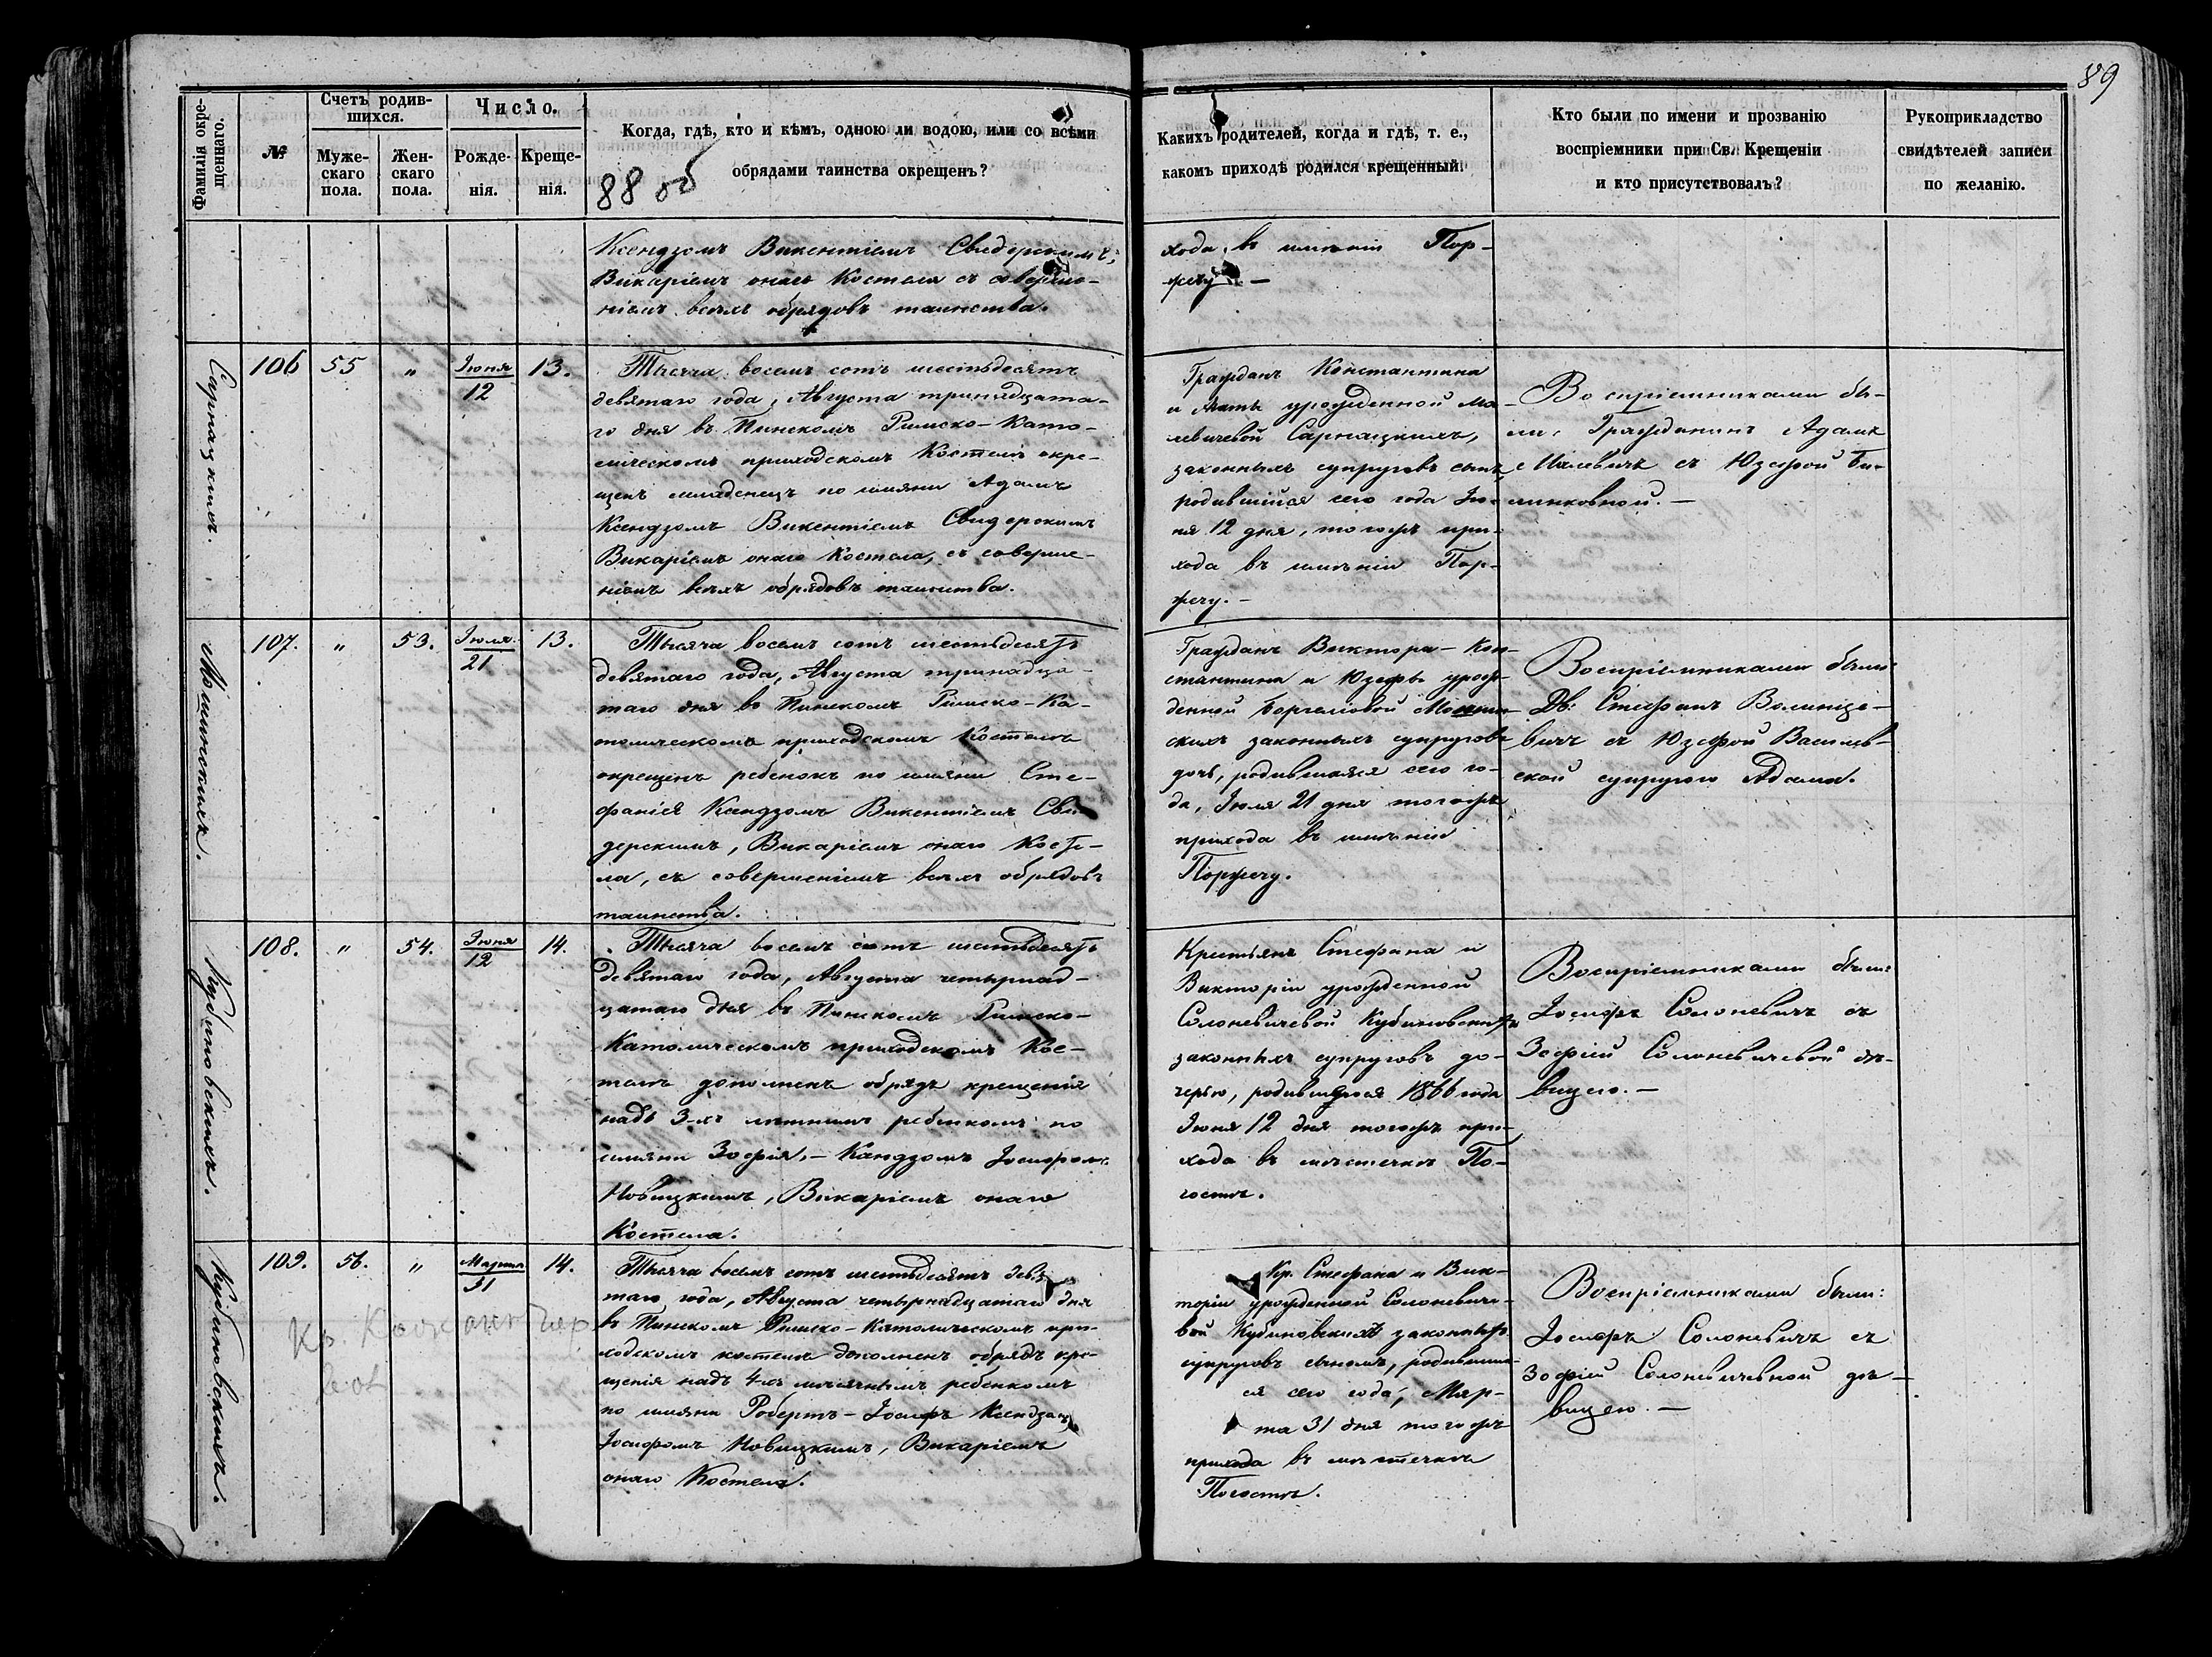 89
Фамилія окре-
щеннаго.
№
Счетъ родив-
шихся.
Муже-
скаго
пола.
Жен-
скаго
пола.
Число.
Рожде-
нія.
Креще-
нія.
Когда, гдѣ, кто и кѣмъ, одною ли водою, или со всѣми
обрядами таинства окрещенъ?
88 об
Какихъ родителей, когда и гдѣ, т. е.,
какомъ приходѣ родился крещенный.
Кто были по имени и прозванію
воспріемники при Св. Крещеніи
и кто присутствовалъ?
Рукоприкладство
свидѣтелей записи
по желанію.
Ксендзомъ Викентіемъ Свидерскимъ,
Викаріемъ онаго Костела съ соверше-
ніемъ всѣхъ обрядовъ таинства.
хода въ имѣніи Пор-
жечу. —
Сарнацкихъ.
106
55
"
Іюня
12
13.
Тысяча восемь сотъ шестьдесятъ
девятаго года, Августа тринадцата-
го дня въ Пинскомъ Римско-Като-
лическомъ приходскомъ Костелѣ окре-
щенъ младенецъ по имяни Адамъ
Ксендзомъ Викентіемъ Свидерскимъ
Викаріемъ онаго Костела, съ соверше-
ніемъ всѣхъ обрядовъ таинства.
Гражданъ Константина
и урожденной Ма-
левичевой Сарнацкихъ,
законныхъ супруговъ сынъ
родившійся сего года Ію-
ня 12 дня, тогожъ при-
хода въ имѣніи Пор-
жечу. —
Воспріемниками бы-
ли: Гражданинъ Адамъ
Малевичъ съ Юзефой Би-
линковной. —
Мошинскихъ.
107.
"
53.
Іюля
21
13.
Тысяча восемь сотъ шестьдесятъ
девятаго года, Августа тринадца-
таго дня въ Пинскомъ Римско-Ка-
толическомъ приходскомъ Костелѣ
окрещенъ ребенокъ по имяни Сте-
фанія Ксендзомъ Викентіемъ Сви-
дерскимъ, Викаріемъ онаго Косте-
ла, съ совершеніемъ всѣхъ обрядовъ
таинства.
Гражданъ Виктора-Кон-
стантина и Юзефы урож-
денной Мошин-
скихъ законныхъ супруговъ
дочь, родившаяся сего го-
да, Іюля 21 дня тогожъ
прихода въ имѣніи
Поржечу.
Воспріемниками были:
Дв: Стефанъ Волинце-
вичъ съ Юзефой Василев-
ской супругою Адама.
Кубиновскихъ.
108.
"
54.
Іюня
12
14.
Тысяча восемь сотъ шестьдесятъ
девятаго года, Августа четырнад-
цатаго дня въ Пинскомъ Римско-
Католическомъ приходскомъ Кос-
телѣ дополненъ обрядъ крещенія
надъ 3-хъ лѣтнимъ ребенкомъ по
имяни Зофія, — Ксендзомъ Іосифомъ
Новицкимъ, Викаріемъ онаго
Костела.
Крестьянъ Стефана и
Викторіи урожденной
Солоневичевой Кубиновскихъ
законныхъ супруговъ до-
черью, родившеюся 1866 года
Іюня 12 дня тогожъ при-
хода въ мѣстечкѣ По-
гостѣ.
Воспріемниками были:
Іосифъ Солоневичъ съ
Зофіей Солоневичевой дѣ-
вицею. —
Кубиновскихъ.
109.
56.
"
Марта
31
14.
Тысяча восемь сотъ шестьдесятъ девя-
таго года, Августа четырнадцатаго дня
въ Пинскомъ Римско-Католическомъ при-
ходскомъ костелѣ дополненъ обрядъ кре-
щенія надъ 4-хъ мѣсячнымъ ребенкомъ
по имяни Робертъ-Іосифъ Ксендзомъ
Іосифомъ Новицкимъ, Викаріемъ
онаго Костела.
Кр. Стефана и Вик-
торіи урожденной Солоневиче-
вой Кубиновскихъ законныхъ
супруговъ сыномъ, родившим-
ся сего года, Мар-
та 31 дня тогожъ
прихода въ мѣстечкѣ
Погостѣ.
Воспріемниками были:
Іосифъ Солоневичъ съ
Зофіей Солоневичевной дѣ-
вицею. —